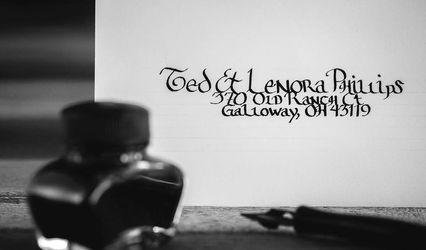 Ted & Lenora Phillips
370 Old Ranch Ct
Galloway, OH 43119